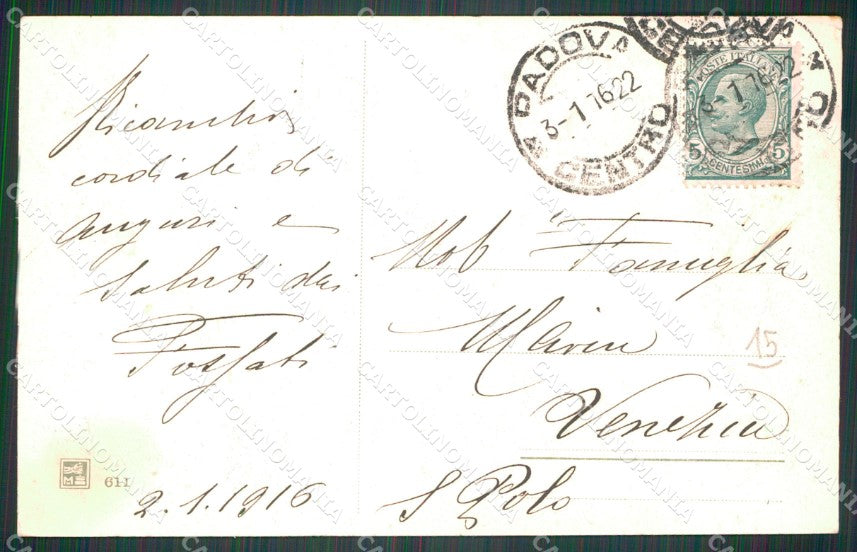 Ricambio
cordiale di
auguri e
saluti dai
Fossati
2.1.1916
611
PADOVA
CENTRO
3-1 16 22
POSTE ITALIANE
5 5
CENTESIMI
Nob Famiglia
Marin
15
Venezia
S Polo
CARTOLINOMANIA